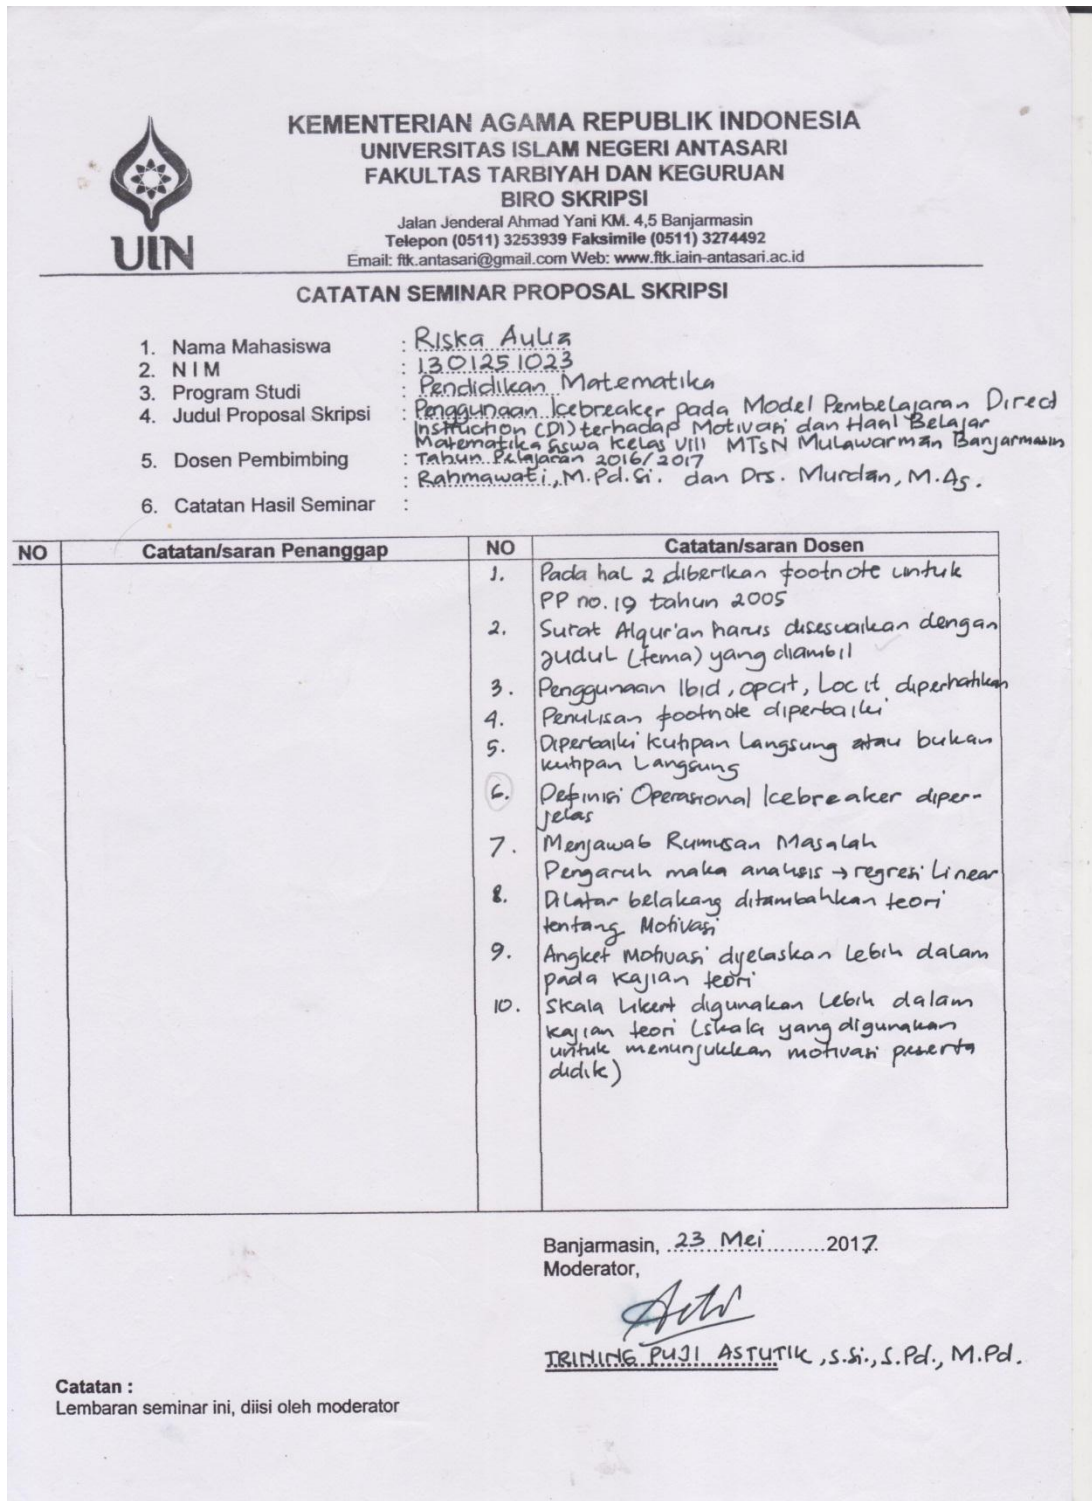 KEMENTERIAN AGAMA REPUBLIK INDONESIA
UNIVERSITAS ISLAM NEGERI ANTASARI
FAKULTAS TARBIYAH DAN KEGURUAN
BIRO SKRIPSI
Jalan Jenderal Ahmad Yani KM. 4,5 Banjarmasin
Telepon (0511) 3253939 Faksimile (0511) 3274492
Email: ftk.antasari@gmail.com Web: www.ftk.iain-antasari.ac.id
UIN
CATATAN SEMINAR PROPOSAL SKRIPSI
1. Nama Mahasiswa : Riska Aulia
2. N I M : 1301251023
3. Program Studi : Pendidikan Matematika
4. Judul Proposal Skripsi : Penggunaan Icebreaker pada Model Pembelajaran Direct
Instruction (DI) terhadap Motivasi dan Hasil Belajar
Matematika Siswa Kelas VIII MTsN Mulawarman Banjarmasin
: Tahun Pelajaran 2016/2017
5. Dosen Pembimbing : Rahmawati, M.Pd.Si. dan Drs. Murdan, M.Ag.
6. Catatan Hasil Seminar :
NO Catatan/saran Penanggap NO Catatan/saran Dosen
1. Pada hal 2 diberikan footnote untuk
PP no. 19 tahun 2005
2. Surat Alqur'an harus disesuaikan dengan
judul (tema) yang diambil
3. Penggunaan Ibid, opcit, Loc it diperhatikan
4. Penulisan footnote diperbaiki
5. Diperbaiki kutipan Langsung atau bukan
kutipan Langsung
6. Definisi Operasional Icebreaker diper-
jelas
7. Menjawab Rumusan Masalah
Pengaruh maka analisis → regresi Linear
8. Dilatar belakang ditambahkan teori
tentang Motivasi
9. Angket Motivasi dijelaskan Lebih dalam
pada kajian teori
10. Skala Likert digunakan Lebih dalam
kajian teori (skala yang digunakan
untuk menunjukkan motivasi peserta
didik)
Banjarmasin, 23 Mei 2017.
Moderator,
TRINING PUJI ASTUTIK, S.Si., S.Pd., M.Pd.
Catatan :
Lembaran seminar ini, diisi oleh moderator